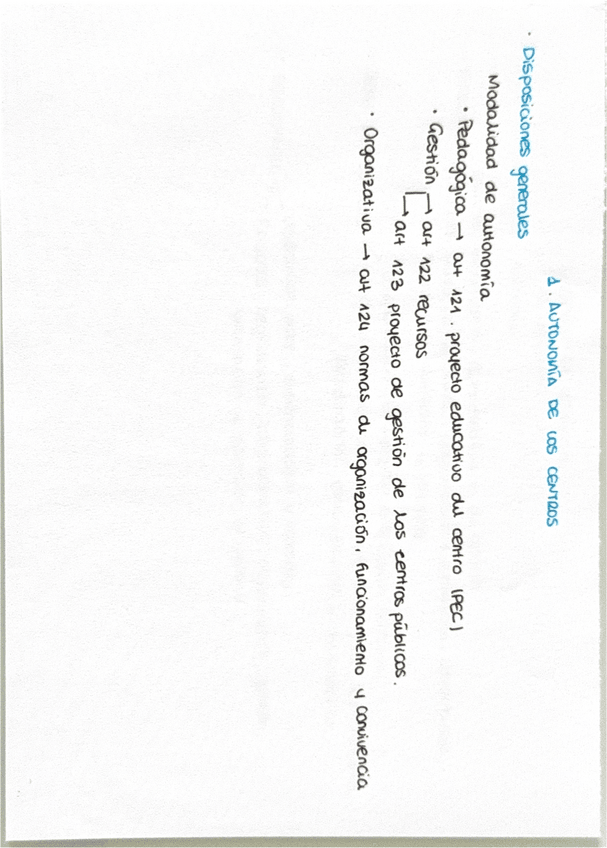 1. AUTONOMÍA DE LOS CENTROS
· Disposiciones generales
Modalidad de autonomía
· Pedagógica → art 121. proyecto educativo del centro (PEC)
· Gestión → art 122 recursos
→ art 123 proyecto de gestión de los centros públicos.
· Organizativa → art 124 normas de organización, funcionamiento y convivencia